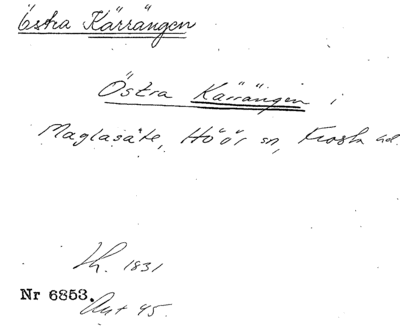 Östra Kärrängen
Östra Kärrängen i
Maglasäte, Höör sn, Frosta hd.
Lh. 1831
Nr 6853.
Ant 45.